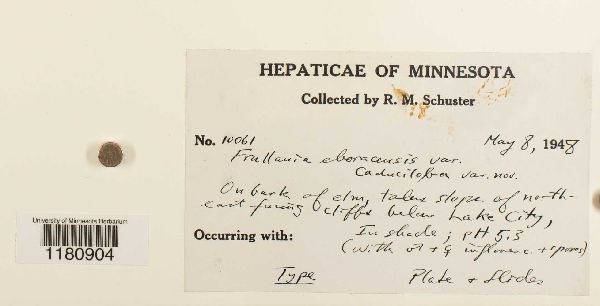 HEPATICAE OF MINNESOTA
Collected by R. M. Schuster
No. 10061 May 8, 1948
Frullania eboracensis var.
caduciloba var. nov.
On bark of elm, talus slope of north-
east-facing cliffs below Lake City,
Occurring with: In shade; pH 5.3
(with ♂ + ♀ infloresc. + spores)
Type Plate + Slides
University of Minnesota Herbarium
1180904